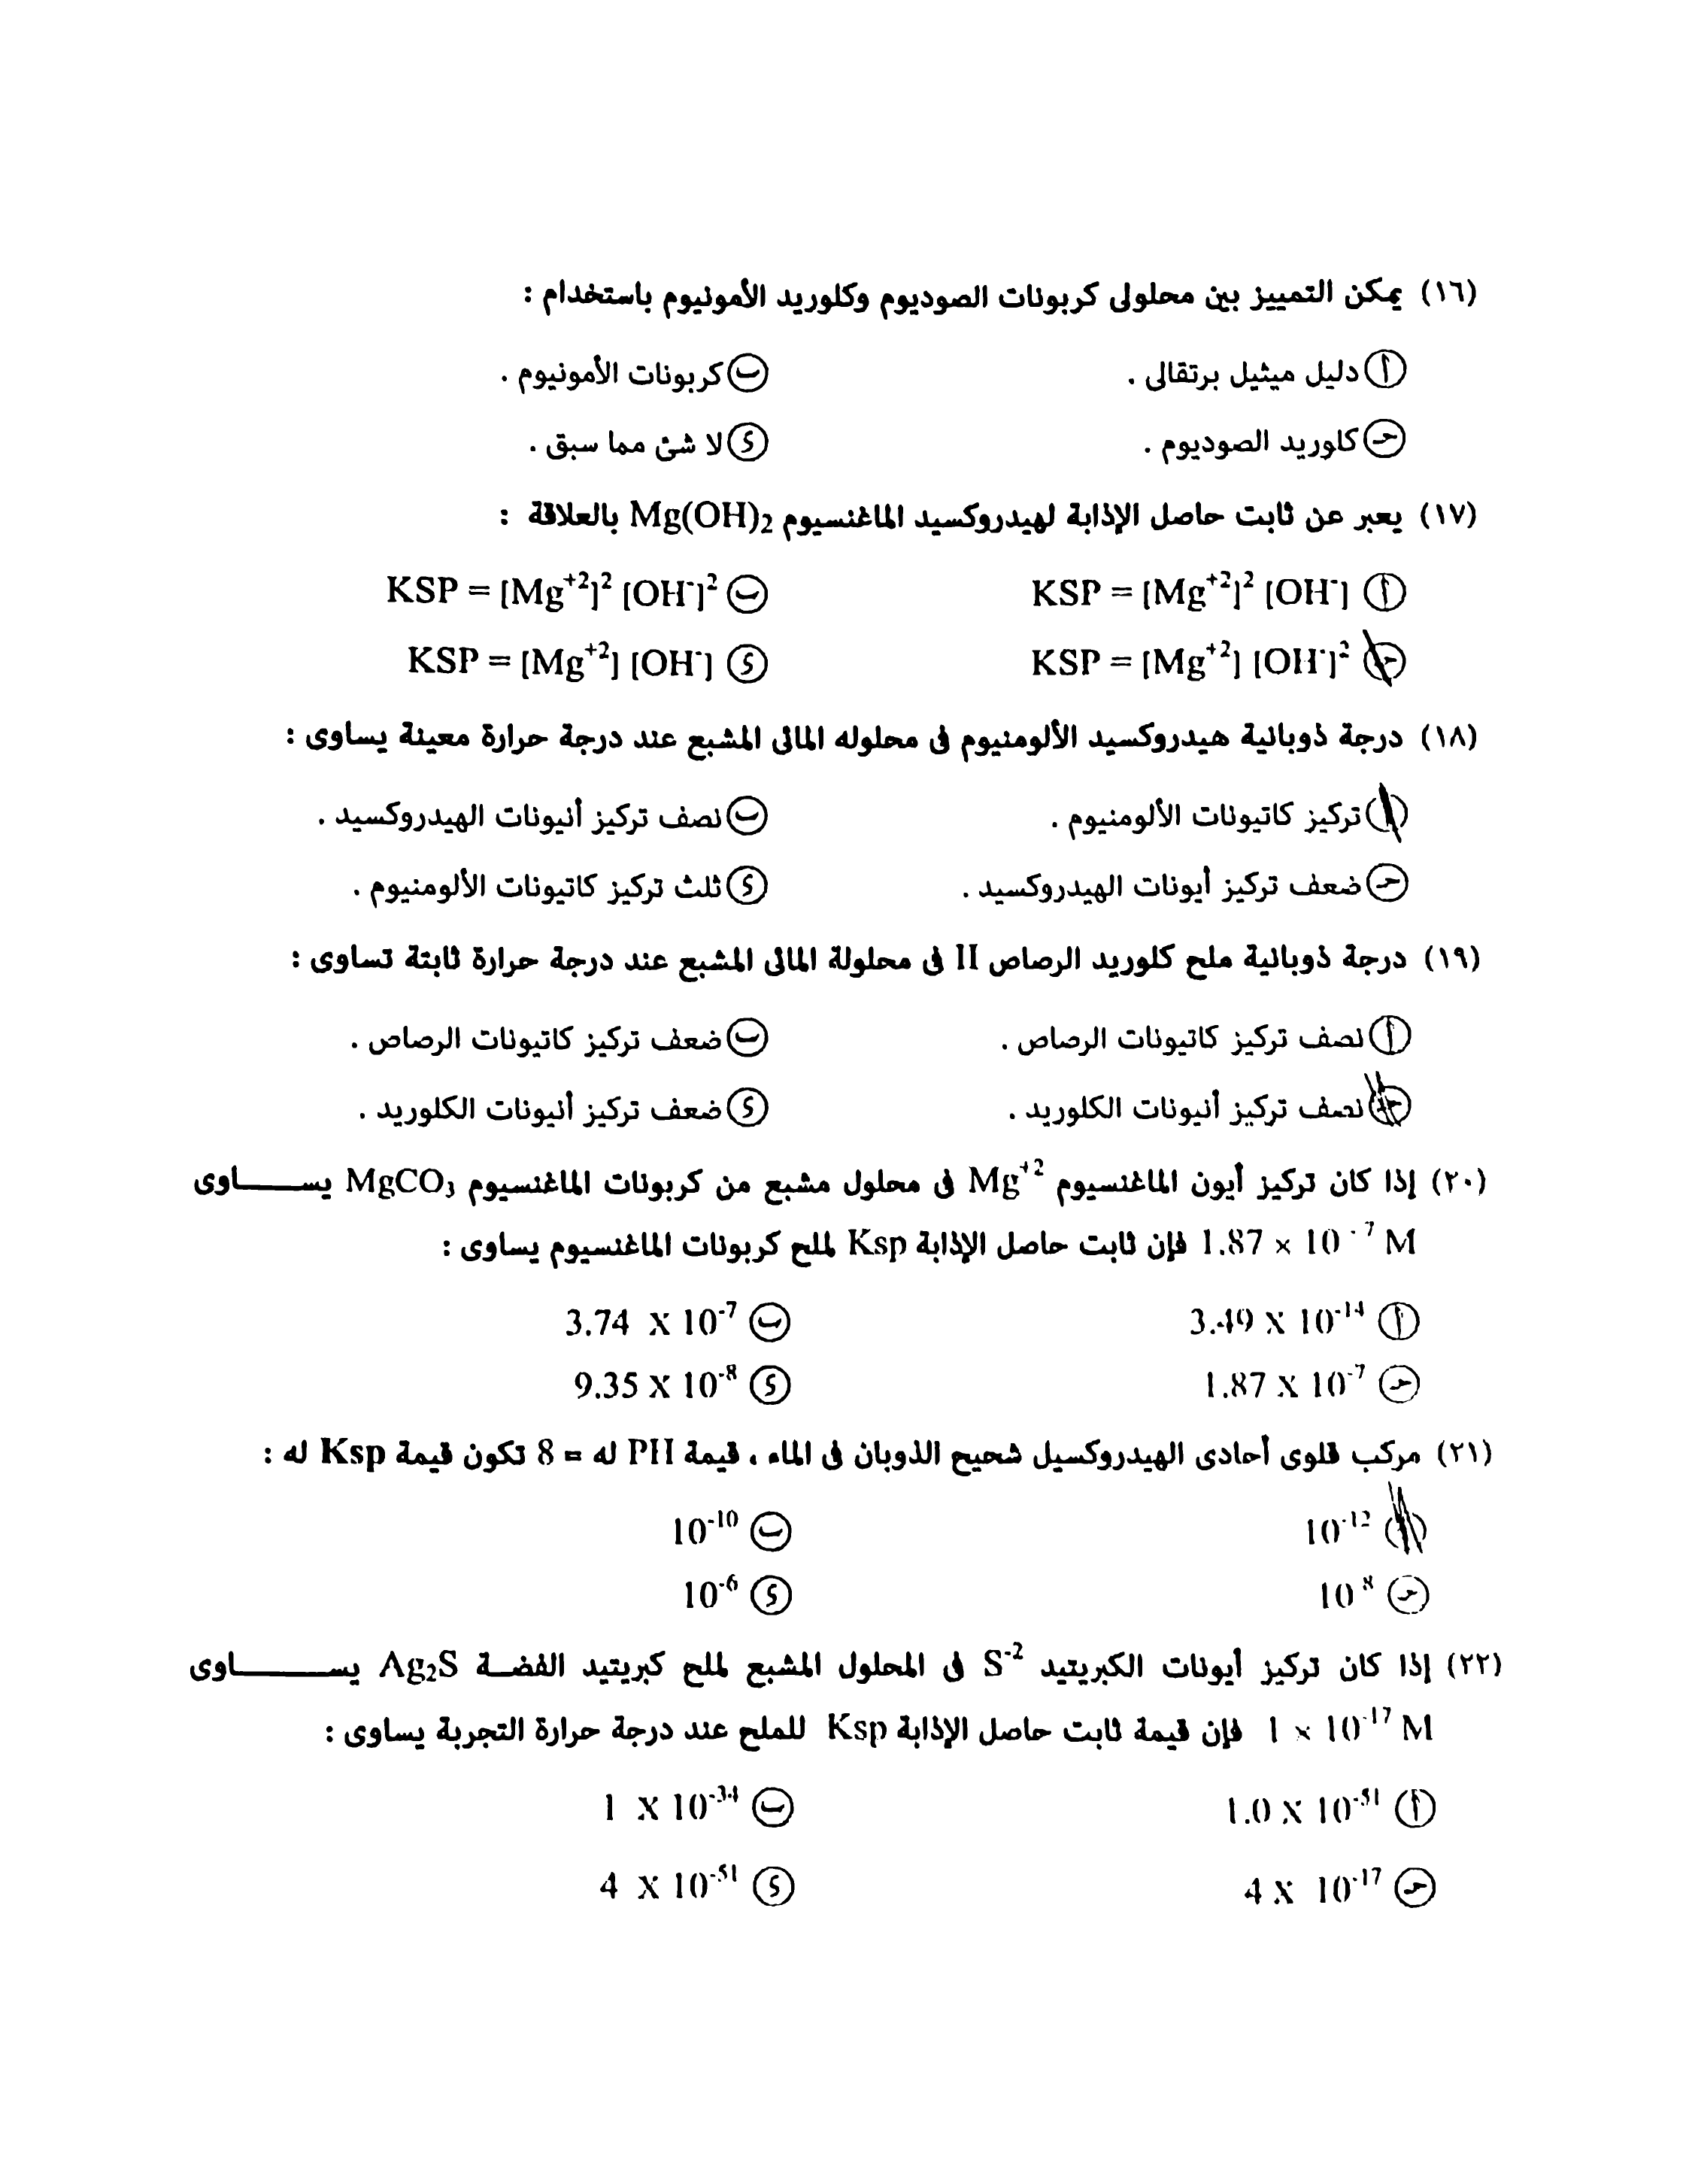 (١٦) يمكن التمييز بين محلولى كربونات الصوديوم وكلوريد الأمونيوم باستخدام :
أ دليل ميثيل برتقالى . ب كربونات الأمونيوم .
حـ كلوريد الصوديوم . د لا شئ مما سبق .
(١٧) يعبر عن ثابت حاصل الإذابة لهيدروكسيد الماغنسيوم Mg(OH)₂ بالعلاقة :
أ KSP = [Mg⁺²]² [OH⁻] ب KSP = [Mg⁺²]² [OH⁻]²
حـ KSP = [Mg⁺²] [OH⁻]² د KSP = [Mg⁺²] [OH⁻]
(١٨) درجة ذوبانية هيدروكسيد الألومنيوم فى محلوله المائى المشبع عند درجة حرارة معينة يساوى :
أ تركيز كاتيونات الألومنيوم . ب نصف تركيز أنيونات الهيدروكسيد .
حـ ضعف تركيز أيونات الهيدروكسيد . د ثلث تركيز كاتيونات الألومنيوم .
(١٩) درجة ذوبانية ملح كلوريد الرصاص II فى محلولة المائى المشبع عند درجة حرارة ثابتة تساوى :
أ نصف تركيز كاتيونات الرصاص . ب ضعف تركيز كاتيونات الرصاص .
حـ نصف تركيز أنيونات الكلوريد . د ضعف تركيز أنيونات الكلوريد .
(٢٠) إذا كان تركيز أيون الماغنسيوم Mg⁺² فى محلول مشبع من كربونات الماغنسيوم MgCO₃ يســــاوى
1.87 × 10⁻⁷ M فإن ثابت حاصل الإذابة Ksp لملح كربونات الماغنسيوم يساوى :
أ 3.49 X 10⁻¹⁴ ب 3.74 X 10⁻⁷
حـ 1.87 X 10⁻⁷ د 9.35 X 10⁻⁸
(٢١) مركب قلوى أحادى الهيدروكسيل شحيح الذوبان فى الماء ، قيمة PH له = 8 تكون قيمة Ksp له :
أ 10⁻¹² ب 10⁻¹⁰
حـ 10⁻⁸ د 10⁻⁶
(٢٢) إذا كان تركيز أيونات الكبريتيد S⁻² فى المحلول المشبع لملح كبريتيد الفضـة Ag₂S يســـــاوى
1 × 10⁻¹⁷ M فإن قيمة ثابت حاصل الإذابة Ksp للملح عند درجة حرارة التجربة يساوى :
أ 1.0 X 10⁻⁵¹ ب 1 X 10⁻³⁴
حـ 4 X 10⁻¹⁷ د 4 X 10⁻⁵¹